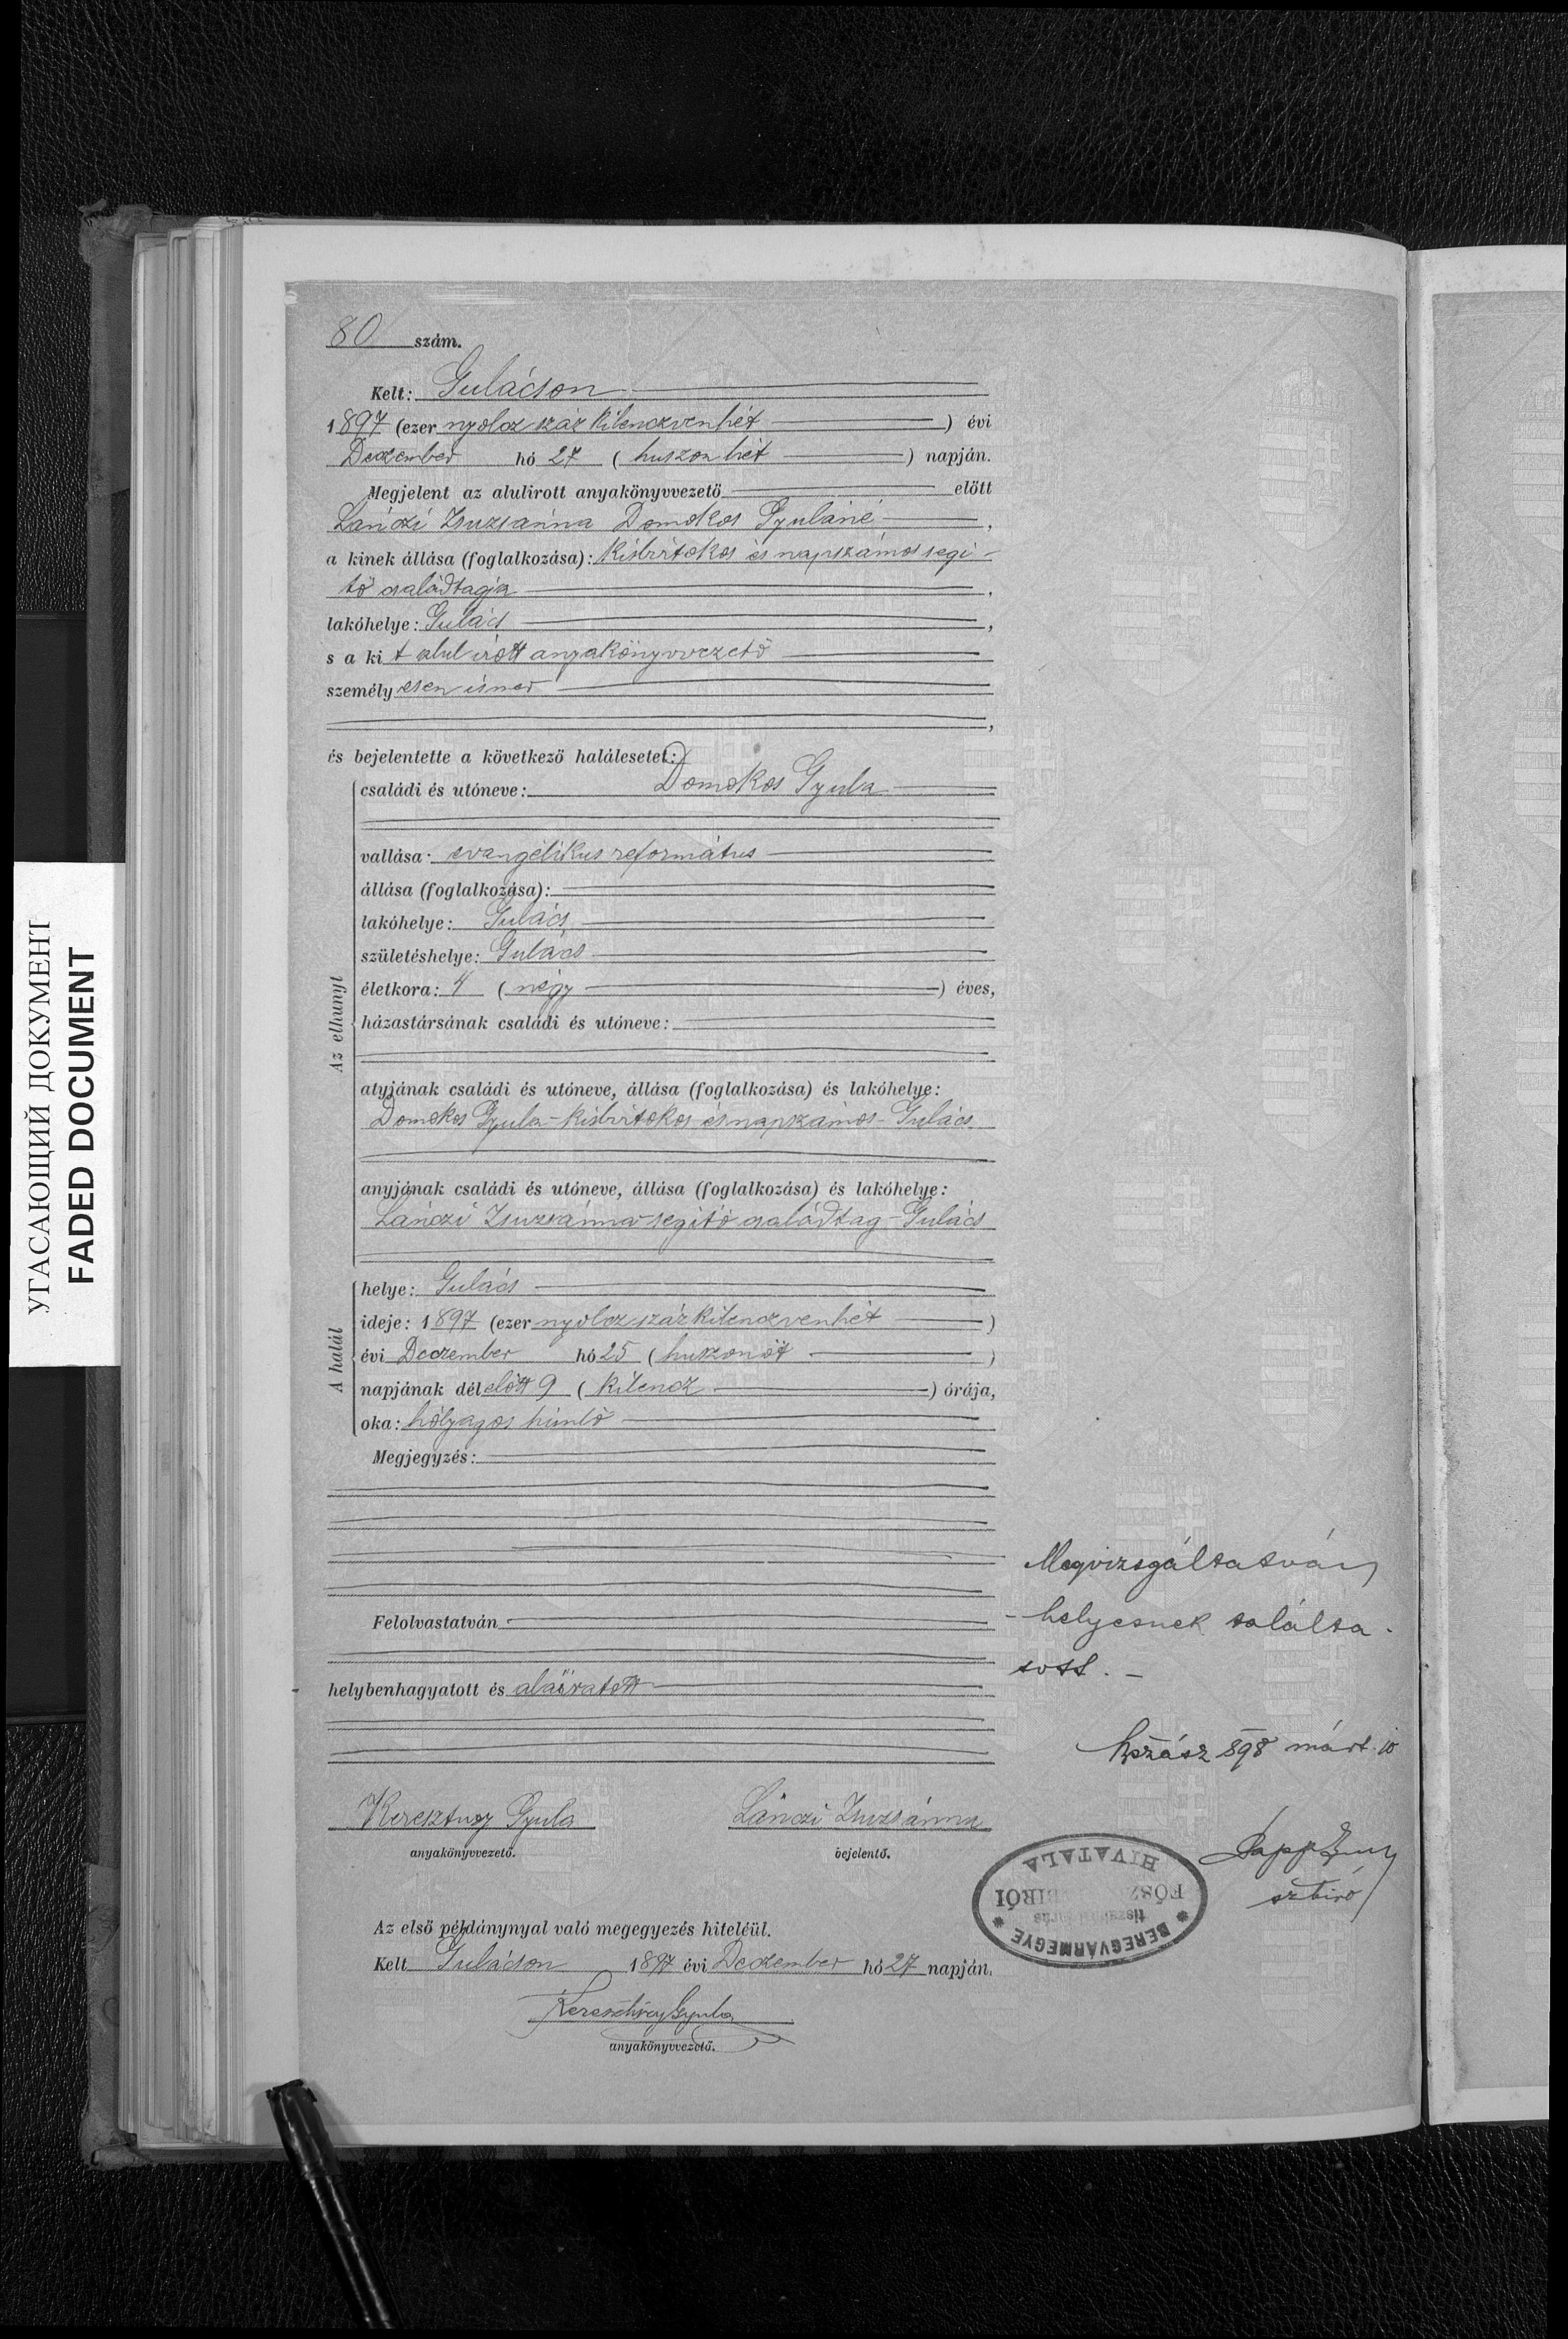 80 szám.
Kelt: Gulácson
1897 (ezer nyolcz száz kilenczvenhét ) évi
Deczember hó 27 ( huszonhét ) napján.
Megjelent az alulirott anyakönyvvezető előtt
Lánczi Zsuzsánna Domokos Gyuláné ,
a kinek állása (foglalkozása): kisbirtokos és napszámos segi-
tő családtagja ,
lakóhelye: Gulács ,
s a ki t alulirott anyakönyvvezető
személy esen ismer
,
és bejelentette a következő halálesetet:
Az elhunyt
családi és utóneve: Domokos Gyula
vallása: evangélikus református
állása (foglalkozása):
lakóhelye: Gulács
születéshelye: Gulács
életkora: 4 ( négy ) éves,
házastársának családi és utóneve:
atyjának családi és utóneve, állása (foglalkozása) és lakóhelye:
Domokos Gyula - kisbirtokos és napszámos - Gulács
anyjának családi és utóneve, állása (foglalkozása) és lakóhelye:
Lánczi Zsuzsánna - segitő családtag - Gulács
A halál
helye: Gulács
ideje: 1897 (ezer nyolcz száz kilenczvenhét )
évi Deczember hó 25 ( huszonöt )
napjának dél előtt 9 ( kilencz ) órája,
oka: hólyagos himlő
Megjegyzés:
Felolvastatván
helybenhagyatott és aláiratott
Keresztury Gyula Lánczi Zsuzsánna
anyakönyvvezető. bejelentő.
Az első példánynyal való megegyezés hiteléül.
Kelt Gulácson 1897 évi Deczember hó 27 napján.
Keresztury Gyula
anyakönyvvezető.
Megvizsgáltatván
- helyesnek találta-
tott. -
898 márt. 10
Papp
sztbiró
BEREGVÁRMEGYE
HIVATALA
УГАСАЮЩИЙ ДОКУМЕНТ
FADED DOCUMENT